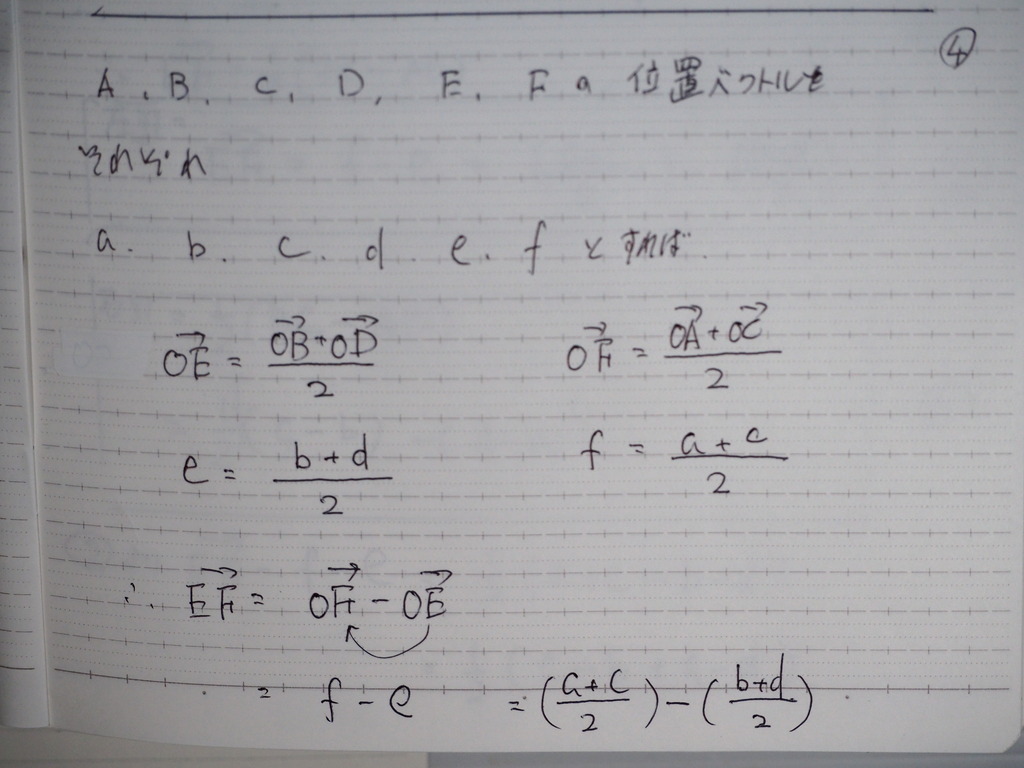 ④
A, B, C, D, E, F の 位置ベクトルを
それぞれ
a. b. c. d. e. f とすれば.
\overrightarrow{OE} = \frac{\overrightarrow{OB}+\overrightarrow{OD}}{2} \overrightarrow{OF} = \frac{\overrightarrow{OA}+\overrightarrow{OC}}{2}
e = \frac{b+d}{2} f = \frac{a+c}{2}
∴ \overrightarrow{EF} = \overrightarrow{OF} - \overrightarrow{OE}
= f - e = (\frac{a+c}{2}) - (\frac{b+d}{2})